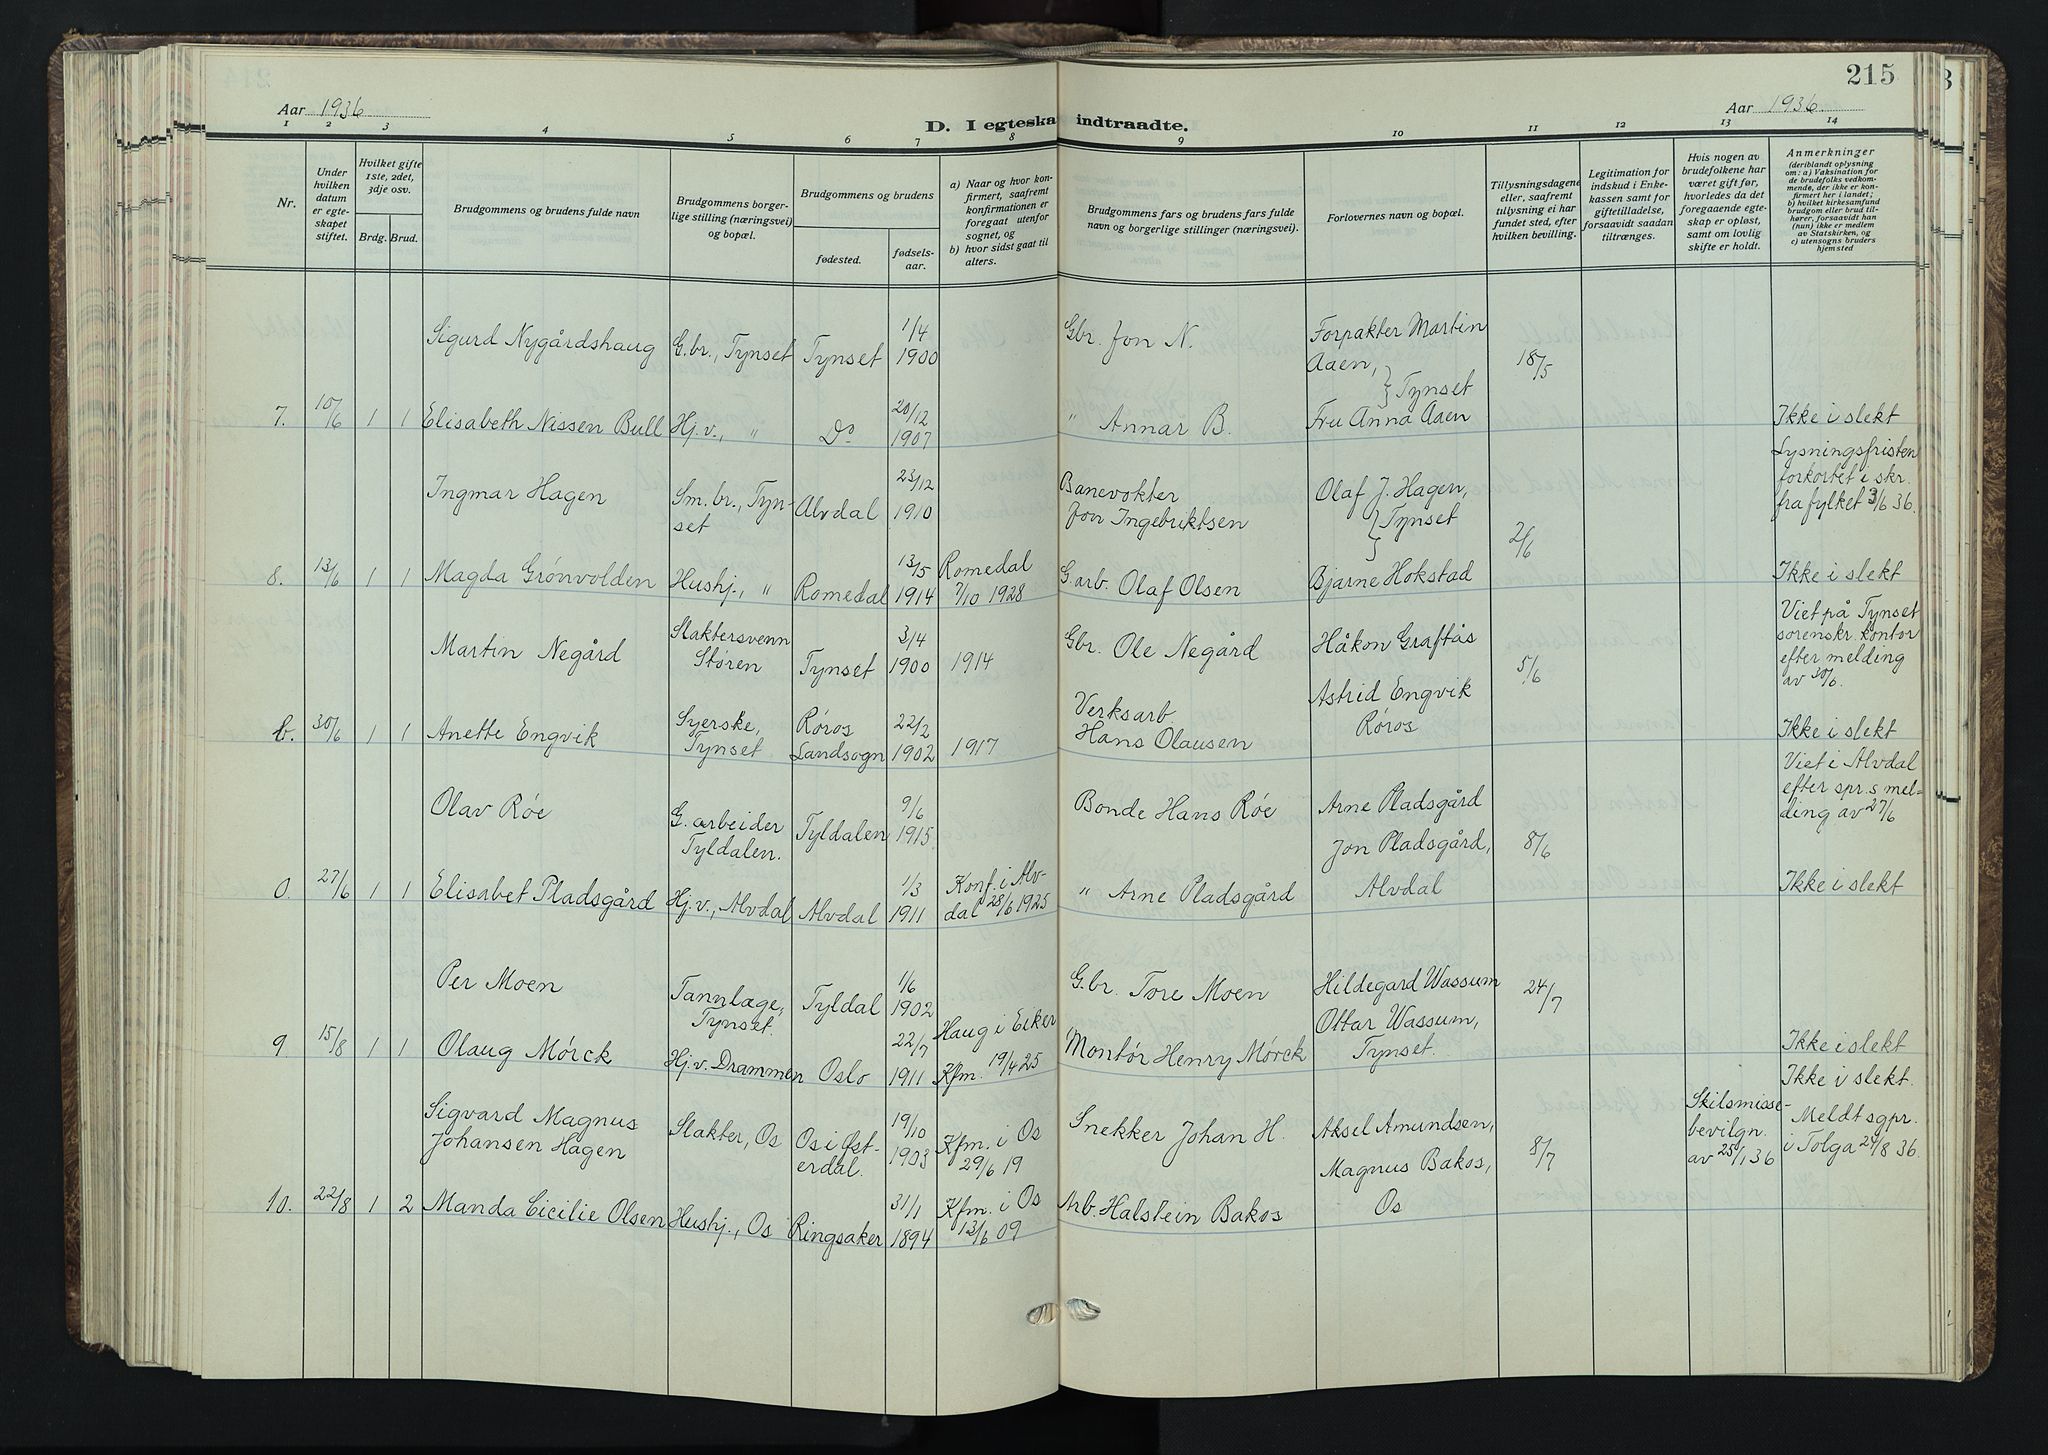 215
Aar 1936
Aar 1936.
D. I egteska indtraadte.
1 2 3 4 5 6 7 8 9 10 11 12 13 14
Nr.
Under hvilken datum er egteskapet stiftet.
Hvilket gifte 1ste, 2det, 3dje osv.
Brdg. Brud.
Brudgommens og brudens fulde navn
Brudgommens borgerlige stilling (næringsvei) og bopæl.
Brudgommens og brudens
fødested.
fødselsaar.
a) Naar og hvor konfirmert, saafremt konfirmationen er foregaat utenfor sognet, og
b) hvor sidst gaat til alters.
Brudgommens fars og brudens fars fulde navn og borgerlige stillinger (næringsvei).
Forlovernes navn og bopæl.
Tillysningsdagene eller, saafremt tillysning ei har fundet sted, efter hvilken bevilling.
Legitimation for indskud i Enkekassen samt for giftetilladelse, forsaavidt saadan tiltrænges.
Hvis nogen av brudefolkene har været gift før, hvorledes da det foregaaende egteskap er opløst, samt om lovlig skifte er holdt.
Anmerkninger
(deriblandt oplysning om: a) Vaksination for de brudefolks vedkommende, der ikke er konfirmert her i landet; b) hvilket kirkesamfund brudgom eller brud tilhører, forsaavidt han (hun) ikke er medlem av Statskirken, og c) utensogns bruders hjemsted
Sigurd Nygårdshaug G.br., Tynset Tynset 1/4 1900 Gbr. Jon N. Forpakter Martin Aaen, } Tynset 18/5
7. 10/6 1 1 Elisabeth Nissen Bull Hj.v., " Do 20/12 1907 " Annar B. Fru Anna Aaen Ikke i slekt
Ingmar Hagen Sm.br., Tynset Alvdal 23/12 1910 Banevokter Jon Ingebriktsen Olaf J. Hagen, } Tynset 2/6 Lysningsfristen forkortet i skr. fra fylket 3/6 36.
8. 13/6 1 1 Magda Grønvolden Hushj., " Romedal 13/5 1914 Romedal 7/10 1928 G.arb. Olaf Olsen Bjarne Hokstad Ikke i slekt
Martin Negård Slaktersvenn Støren Tynset 3/4 1900 1914 Gbr. Ole Negård Håkon Graftås 5/6 Viet på Tynset sorenskr. kontor efter melding av 30/6.
b. 30/6 1 1 Anette Engvik Syerske, Tynset Røros Landsogn 22/2 1902 1917 Verksarb. Hans Olausen Astrid Engvik Røros Ikke i slekt
Olav Røe G.arbeider Tyldalen. Tyldalen 9/6 1915 Bonde Hans Røe Arne Pladsgård 8/6 Viet i Alvdal efter spr.s melding av 27/6
0. 27/6 1 1 Elisabet Pladsgård Hj.v., Alvdal Alvdal 1/3 1911 Konf. i Alvdal 28/6 1925 " Arne Pladsgård Jon Pladsgård, Alvdal Ikke i slekt
Per Moen Tannlæge, Tynset. Tyldal 1/6 1902 G.br. Tore Moen Hildegard Wassum 24/7
9 15/8 1 1 Olaug Mørck Hj.v. Drammen Oslo 22/7 1911 Haug i Eiker Kfm. 19/4 25 Montør Henry Mørck Ottar Wassum, Tynset. Ikke i slekt
Sigvard Magnus Johansen Hagen Slakter, Os Os i Østerdal. 19/10 1903 Kfm. i Os 29/6 19 Snekker Johan H. Aksel Amundsen, 8/7 Skilsmissebevilgn. av 25/1 36 Ikke i slekt. Meldt sgpr. i Tolga 24/8 36.
10. 22/8 1 2 Manda Cicilie Olsen Hushj., Os Ringsaker 31/1 1894 Kfm. i Os 13/6 09 Arb. Halstein Bakos Magnus Bakos, Os